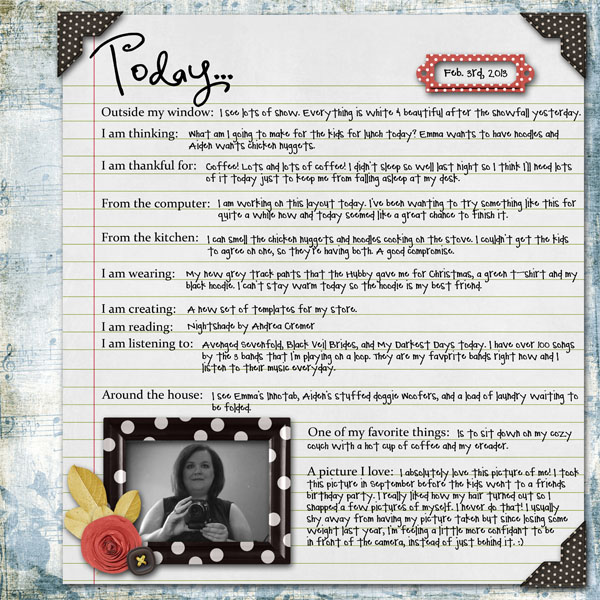 Today...
Feb. 3rd, 2013
Outside my window: I see lots of snow. Everything is white & beautiful after the snowfall yesterday.
I am thinking: What am I going to make for the kids for lunch today? Emma wants to have noodles and
Aiden wants chicken nuggets.
I am thankful for: Coffee! Lots and lots of coffee! I didn't sleep so well last night so I think I'll need lots
of it today just to keep me from falling asleep at my desk.
From the computer: I am working on this layout today. I've been wanting to try something like this for
quite a while now and today seemed like a great chance to finish it.
From the kitchen: I can smell the chicken nuggets and noodles cooking on the stove. I couldn't get the kids
to agree on one, so they're having both. A good compromise.
I am wearing: My new grey track pants that the Hubby gave me for Christmas, a green t-shirt and my
black hoodie. I can't stay warm today so the hoodie is my best friend.
I am creating: A new set of templates for my store.
I am reading: Nightshade by Andrea Cremer
I am listening to: Avenged Sevenfold, Black Veil Brides, and My Darkest Days today. I have over 100 songs
by the 3 bands that I'm playing on a loop. They are my favprite bands right now and I
listen to their music everyday.
Around the house: I see Emma's Innotab, Aiden's stuffed doggie Woofers, and a load of laundry waiting to
be folded.
One of my favorite things: Is to sit down on my cozy
couch with a hot cup of coffee and my ereader.
A picture I love: I absolutely love this picture of me! I took
this picture in September before the kids went to a friends
birthday party. I really liked how my hair turned out so I
snapped a few pictures of myself. I never do that! I usually
shy away from having my picture taken but since losing some
weight last year, I'm feeling a little more confidant to be
in front of the camera, instead of just behind it. :)